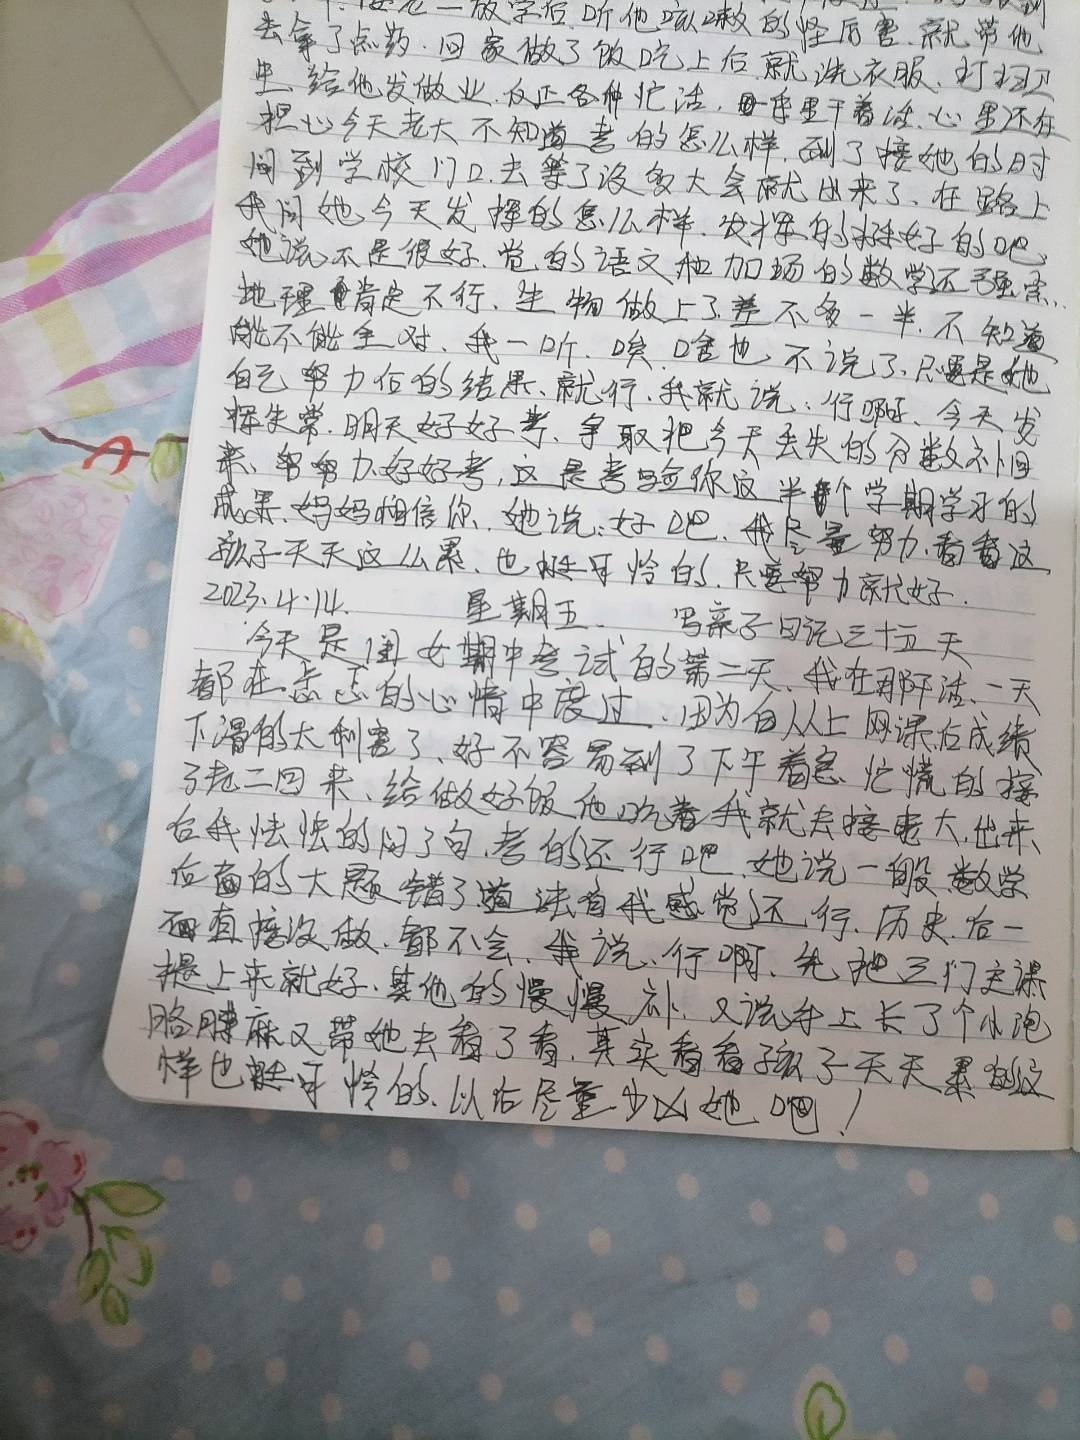 接老二放学后.听他咳嗽的怪厉害.就带他
去拿了点药.回家做了饭吃上后.就洗衣服、打扫卫
生.给他发做业.反正各种忙活.手里干着活.心里还在
担心今天老大不知道考的怎么样.到了接她的时
间到学校门口.去等了没多大会就出来了、在路上
我问她今天发挥的怎么样.发挥的挺好的吧.
她说不是很好.觉的语文和加场的数学还
地理肯定不行.生物做上了差不多一半.不知道
能不能全对、我一听.唉.啥也不说了.只要是她
自己努力后的结果、就行.我就说:行啊、今天发
挥失常.明天好好考、争取把今天丢失的分数补回
来、努努力.好好考,这是考验你这半个学期学习的
成果.妈妈相信你.她说:好吧.我尽量努力.看看这
孩子天天这么累.也挺可怜的.只要努力就好.
2023.4.14. 星期五. 写亲子日记三十五天
今天是闺女期中考试的第二天、我在那干活、一天
都在忐忑的心情中度过.因为自从上网课后成绩
下滑的太利害了、好不容易到了下午着急忙慌的接
了老二回来、给做好饭他吃着我就去接老大.出来
后我怯怯的问了句.考的还行吧.她说一般.数学
后面的大题错了道.法自我感觉还行.历史.后一
面直接没做.都不会.我说.行啊.先把三门主课
提上来就好.其他的慢慢补.又说手上长了个小泡
胳膊麻又带她去看了看.其实看看孩子天天累的
样也挺可怜的.以后尽量少凶她吧!